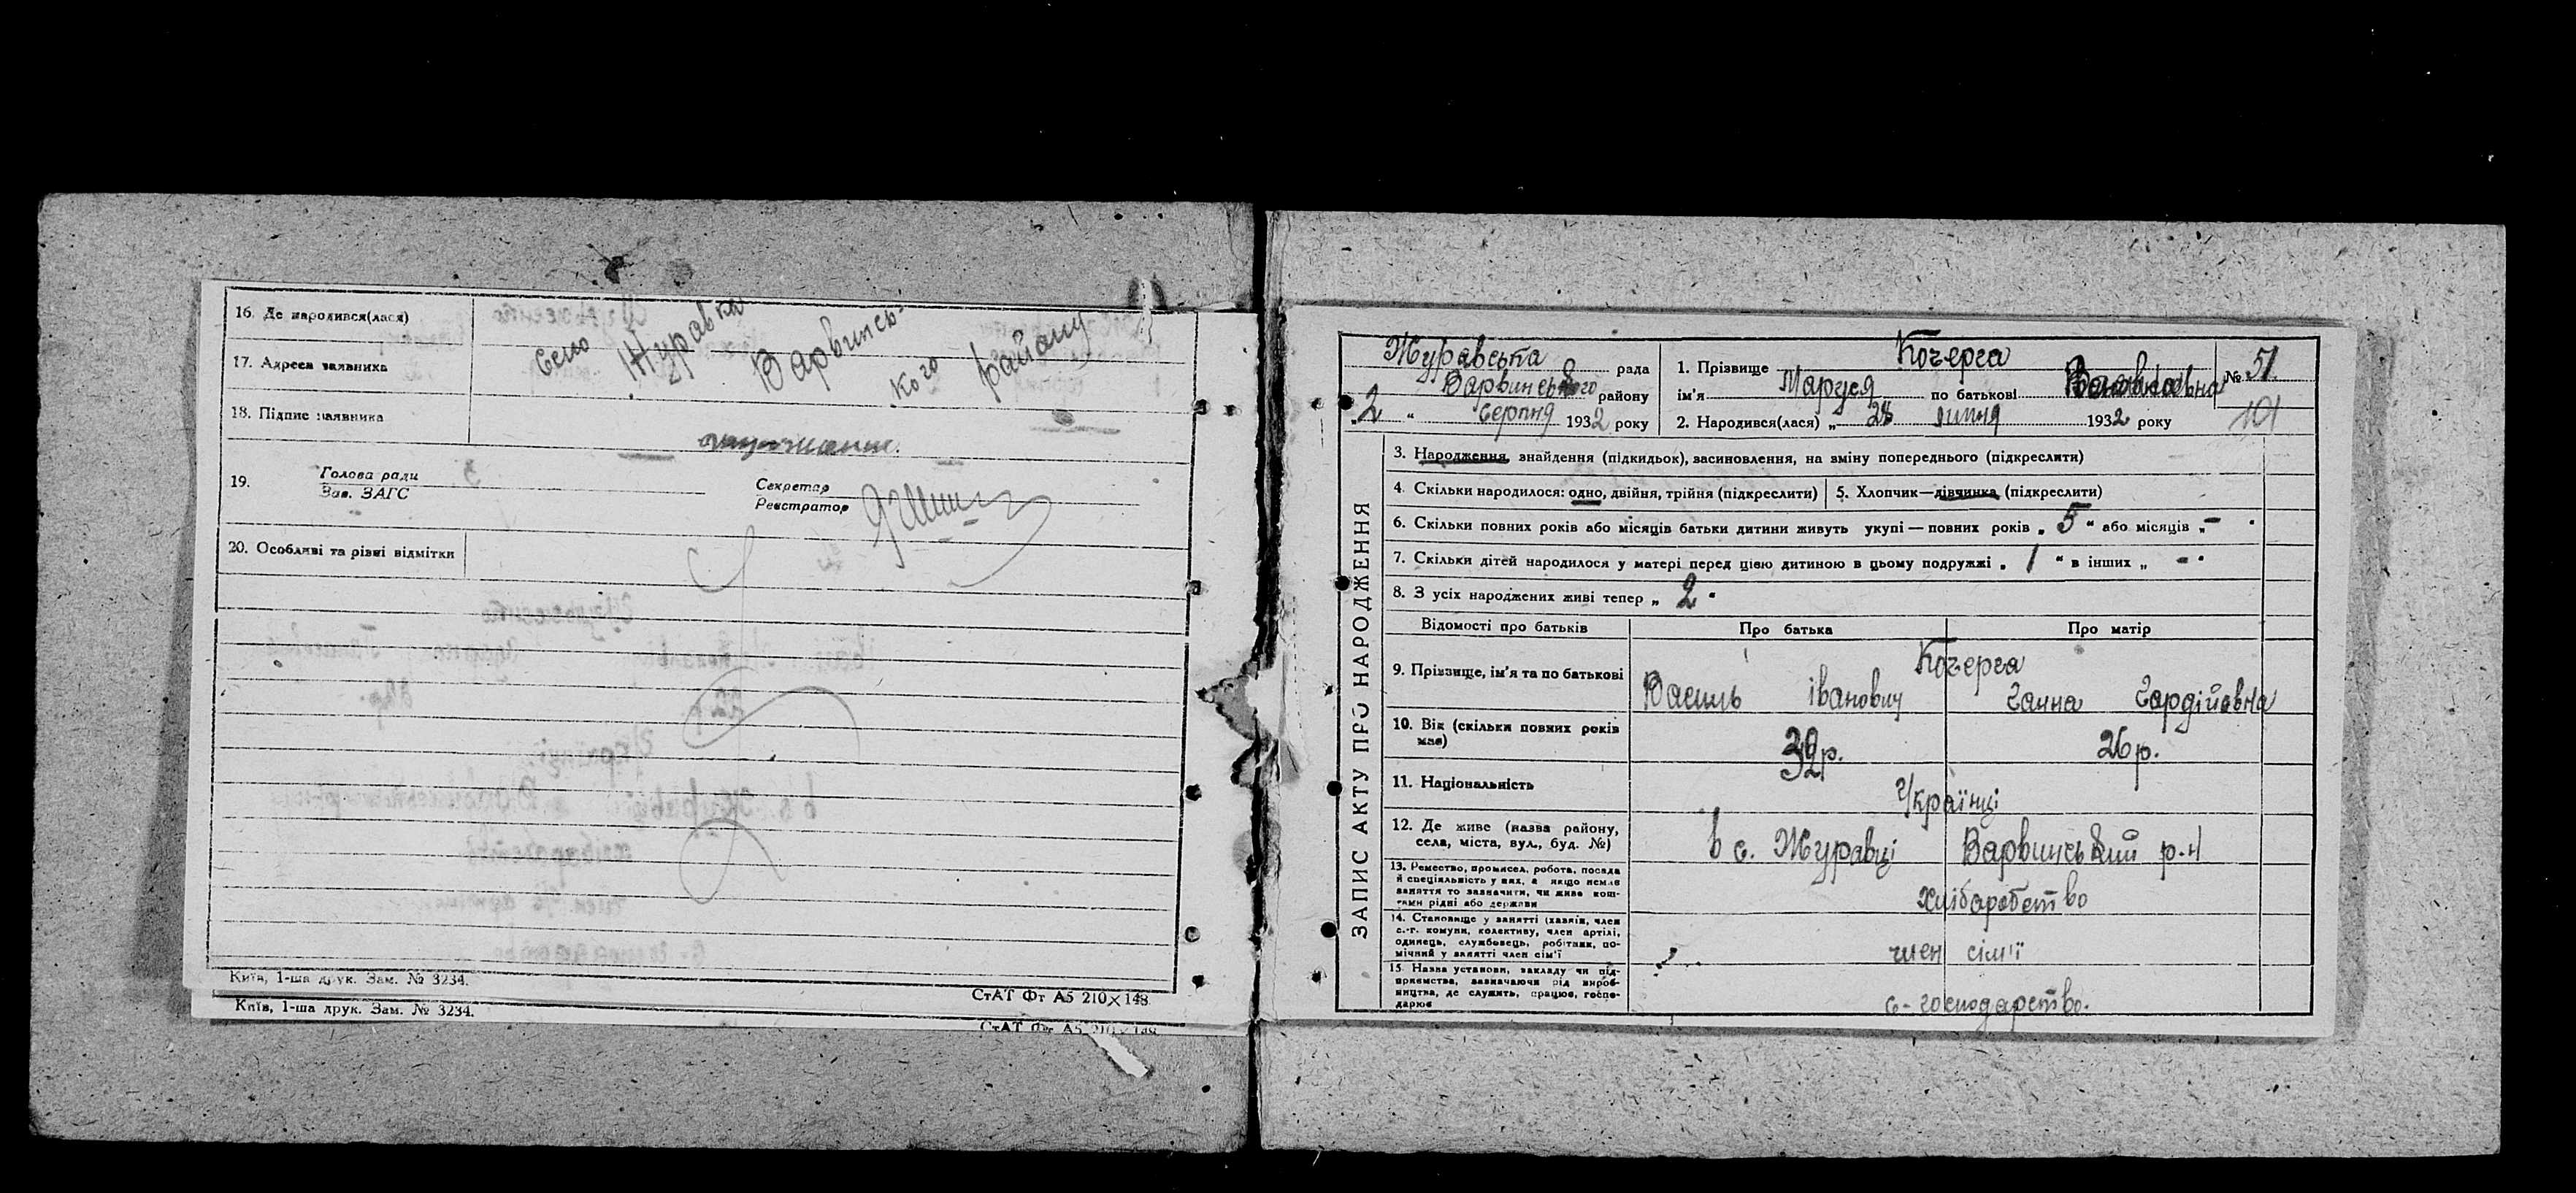 16. Де народився(лася)
село Журавка Варвинсь-
кого району
17. Адреса заявника
18. Підпис заявника
19.
Голова ради
Зав. ЗАГС
Секретар
Реєстратор
20. Особливі та різні відмітки
Київ, 1-ша друк. Зам. № 3234.
СтАТ Фт А5 210×148
Київ, 1-ша друк. Зам. № 3234.
СтАТ Фт А5 210×148
ЗАПИС АКТУ ПРО НАРОДЖЕННЯ
Журавська рада
Варвинського району
„2“ серпня 1932 року
1. Прізвище Кочерга
ім'я Маруся по батькові
№ 51
2. Народився(лася) „ 28 липня 1932 року
101
3. Народження, знайдення (підкидьок), засиновлення, на зміну попереднього (підкреслити)
4. Скільки народилося: одно, двійня, трійня (підкреслити)
5. Хлопчик—дівчинка (підкреслити)
6. Скільки повних років або місяців батьки дитини живуть укупі — повних років „ 5 “ або місяців „ –
7. Скільки дітей народилося у матері перед цією дитиною в цьому подружжі „ 1 “ в інших „ –
8. З усіх народжених живі тепер „ 2
Відомості про батьків
Про батька
Про матір
9. Прізвище, ім'я та по батькові
Кочерга
Василь іванович
Ганна Гардійовна
10. Вік (скільки повних років має)
26 р.
11. Національність
Українці
12. Де живе (назва району,
села, міста, вул., буд. №)
в с. Журавці Варвинський р-н
13. Ремество, промисел, робота, посада
й спеціяльність у них, а якщо немає
заняття то зазначити, чи живе кош-
тами рідні або держави
Хліборобство
14. Становище у занятті (хазяїн, член
с.-г. комуни, колективу, член артілі,
одинець, службовець, робітник, по-
мічний у занятті член сім'ї
член сім'ї
15. Назва установи, закладу чи під-
приємства, зазначаючи рід вироб-
ництва, де служить, працює, госпо-
дарює
с-господарство.